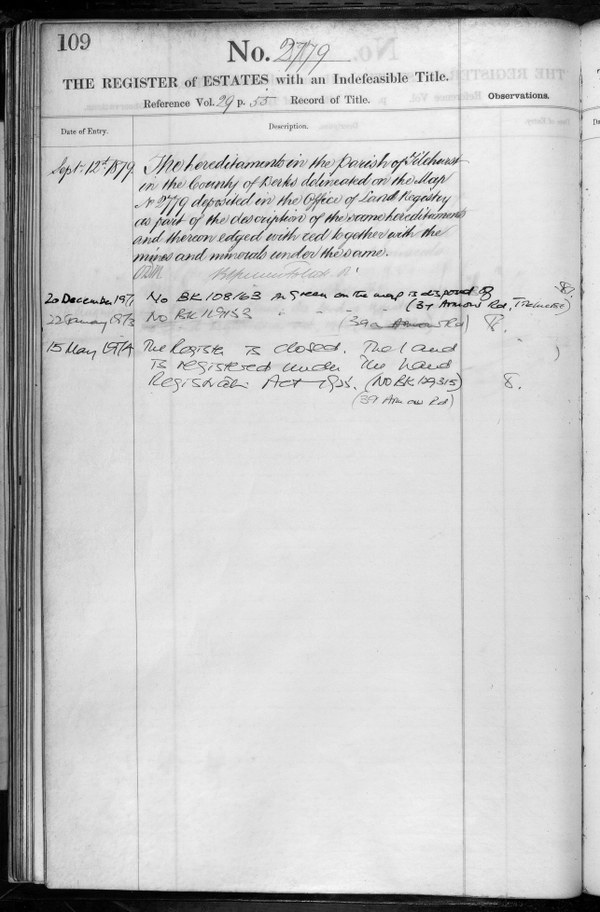 109
No. 2779
THE REGISTER of ESTATES with an Indefeasible Title.
Reference Vol. 29 p. 55 Record of Title.
Observations.
Date of Entry.
Description.
Sept. 12th 1879. The hereditaments in the Parish of Tilehurst
in the County of Berks delineated on the Map
No 2779 deposited in the Office of Land Registry
as part of the description of the same hereditaments
and thereon edged with red together with the
mines and minerals under the same.
20 December 1971 No BK 108163 in Green on the map is disposed of
(37 Armour Rd, Tilehurst)
22 January 1973 No BK 119153 " " " " (39a Armour Rd)
15 May 1974 The Register is closed. The land
is registered under the Land
Registration Act 1925. (No BK 129315) 8.
(39 Armour Rd)